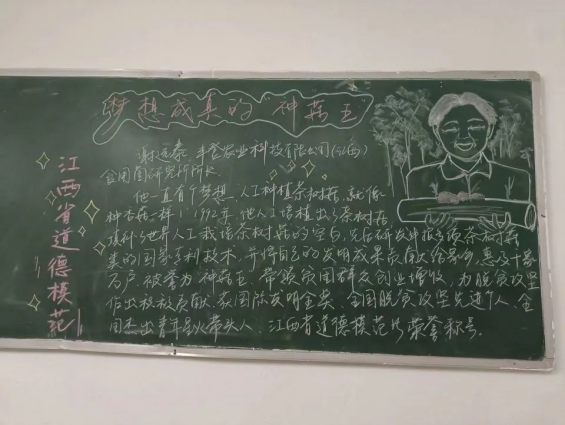 梦想成真的"神菇王"
江西省道德模范
谢远泰,丰登农业科技有限公司(江西)
食用菌研究所所长
他一直有个梦想,人工种植茶树菇,就像
种香菇一样!1992年他人工培植出了茶树菇
填补了世界人工栽培茶树菇的空白,先后研发申报多项茶树菇
类的国家专利技术,并将自己的发明成果贡献给群众,惠及十多
万户,被誉为"神菇王",带领贫困群众创业增收,为脱贫攻坚
作出积极贡献,获国际发明金奖、全国脱贫攻坚先进个人、全
国杰出青年星火带头人、江西省道德模范等荣誉称号。